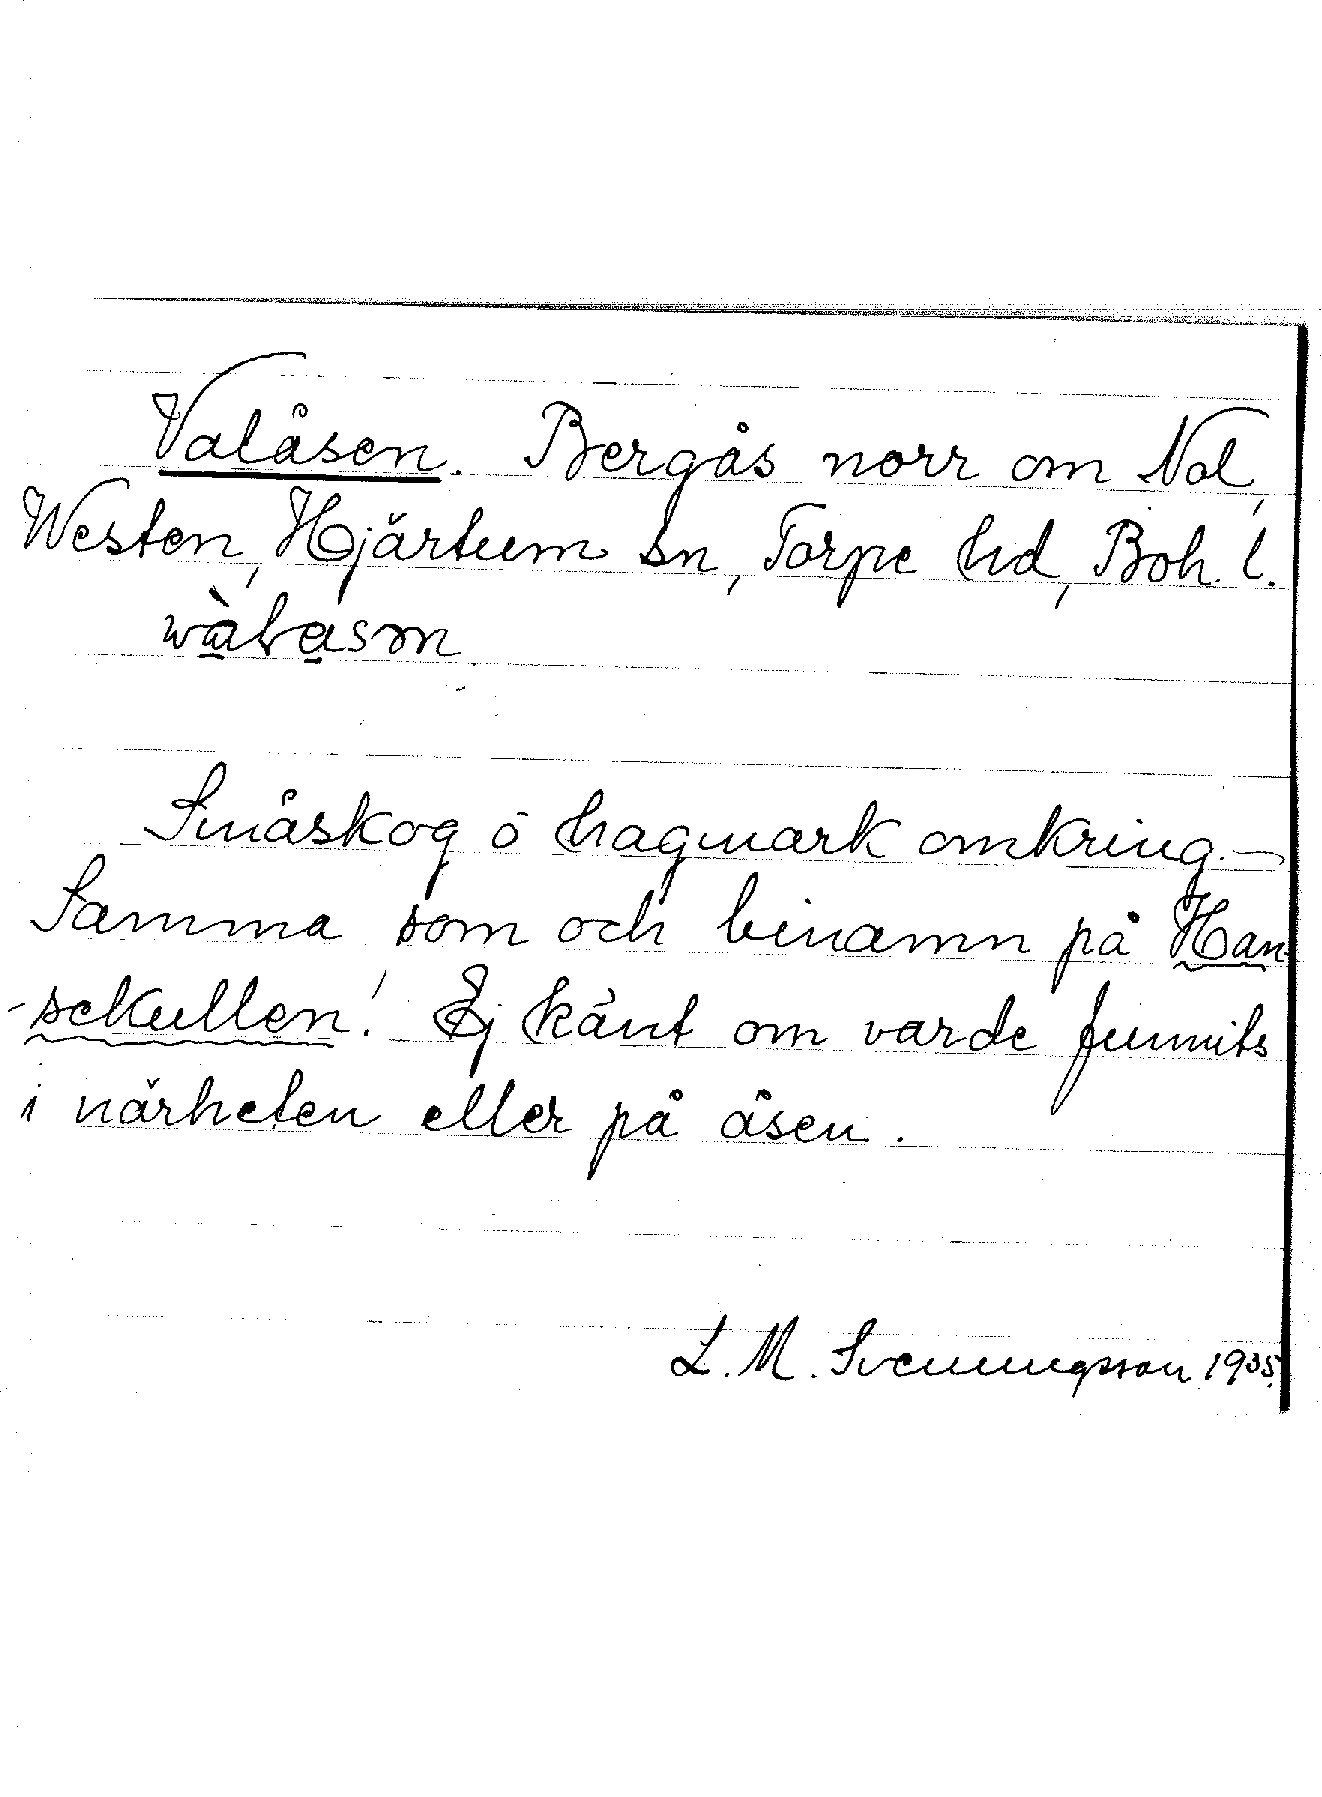 Valåsen. Bergås norr om Nol,
Westen, Hjärtum sn, Torpe hd, Boh. l.
Småskog o hagmark omkring. –
Samma som och binamn på Han-
-sekullen! Ej känt om varde funnits
i närheten eller på åsen.
L. M. Svenningsson 1935.